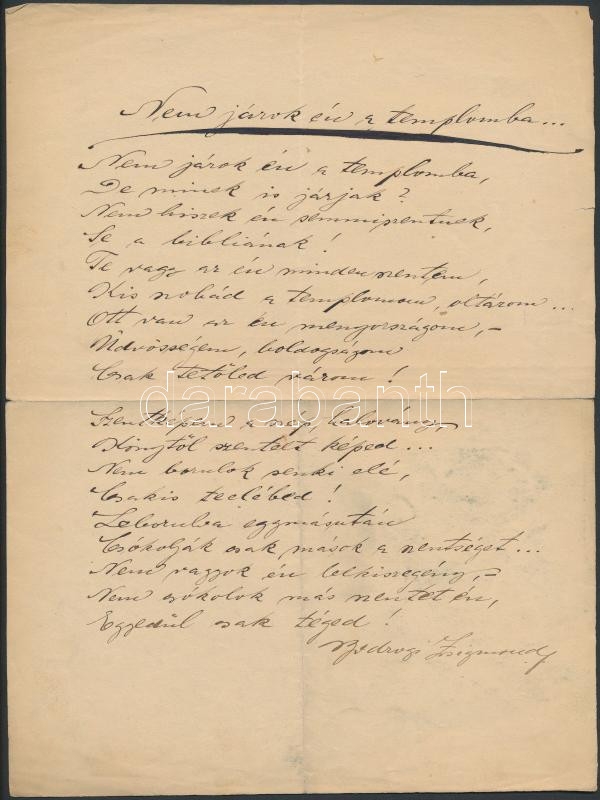 Nem járok én a templomba...
Nem járok én a templomba,
De minek is járjak?
Nem hiszek én semmi szentnek,
Se a bibliának!
Te vagy az én minden szentem,
Kis szobád a templomom, oltárom...
Ott van az én mennyországom,-
Üdvösségem, boldogságom
Csak tetőled várom!
darabanth
Szentképem a szép, halovány,
Könytől szentelt képed...
Nem borulok senki elé,
Csakis teelébed!
Leborulva egymásután
Csókolják csak mások a szentséget...
Nem vagyok én lelkiszegény,-
Nem csókolok más szentet én,
Egyedül csak téged!
Bodrogi Zsigmond